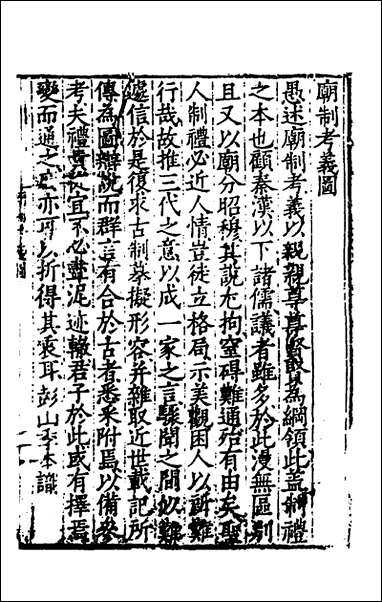 廟制考義圖
愚述廟制考義以親親尊尊賢賢為綱領此蓋制禮
之本也顧秦漢以下諸儒議者雖多於此漫無區別
且又以廟分昭穆其說尤拘窒碍難通殆有由矣聖
人制禮必近人情豈徒立格局示美觀困人以所難
行哉故推三代之意以成一家之言驟聞之間似難
遽信於是復求古制摹擬形容并雜取近世載記所
傳為圖辯說而群言有合於古者悉采附焉以備參
考夫禮貴從宜不必盡泥迹轍君子於此或有擇焉
變而通之亦可以折得其衷耳彭山季本識